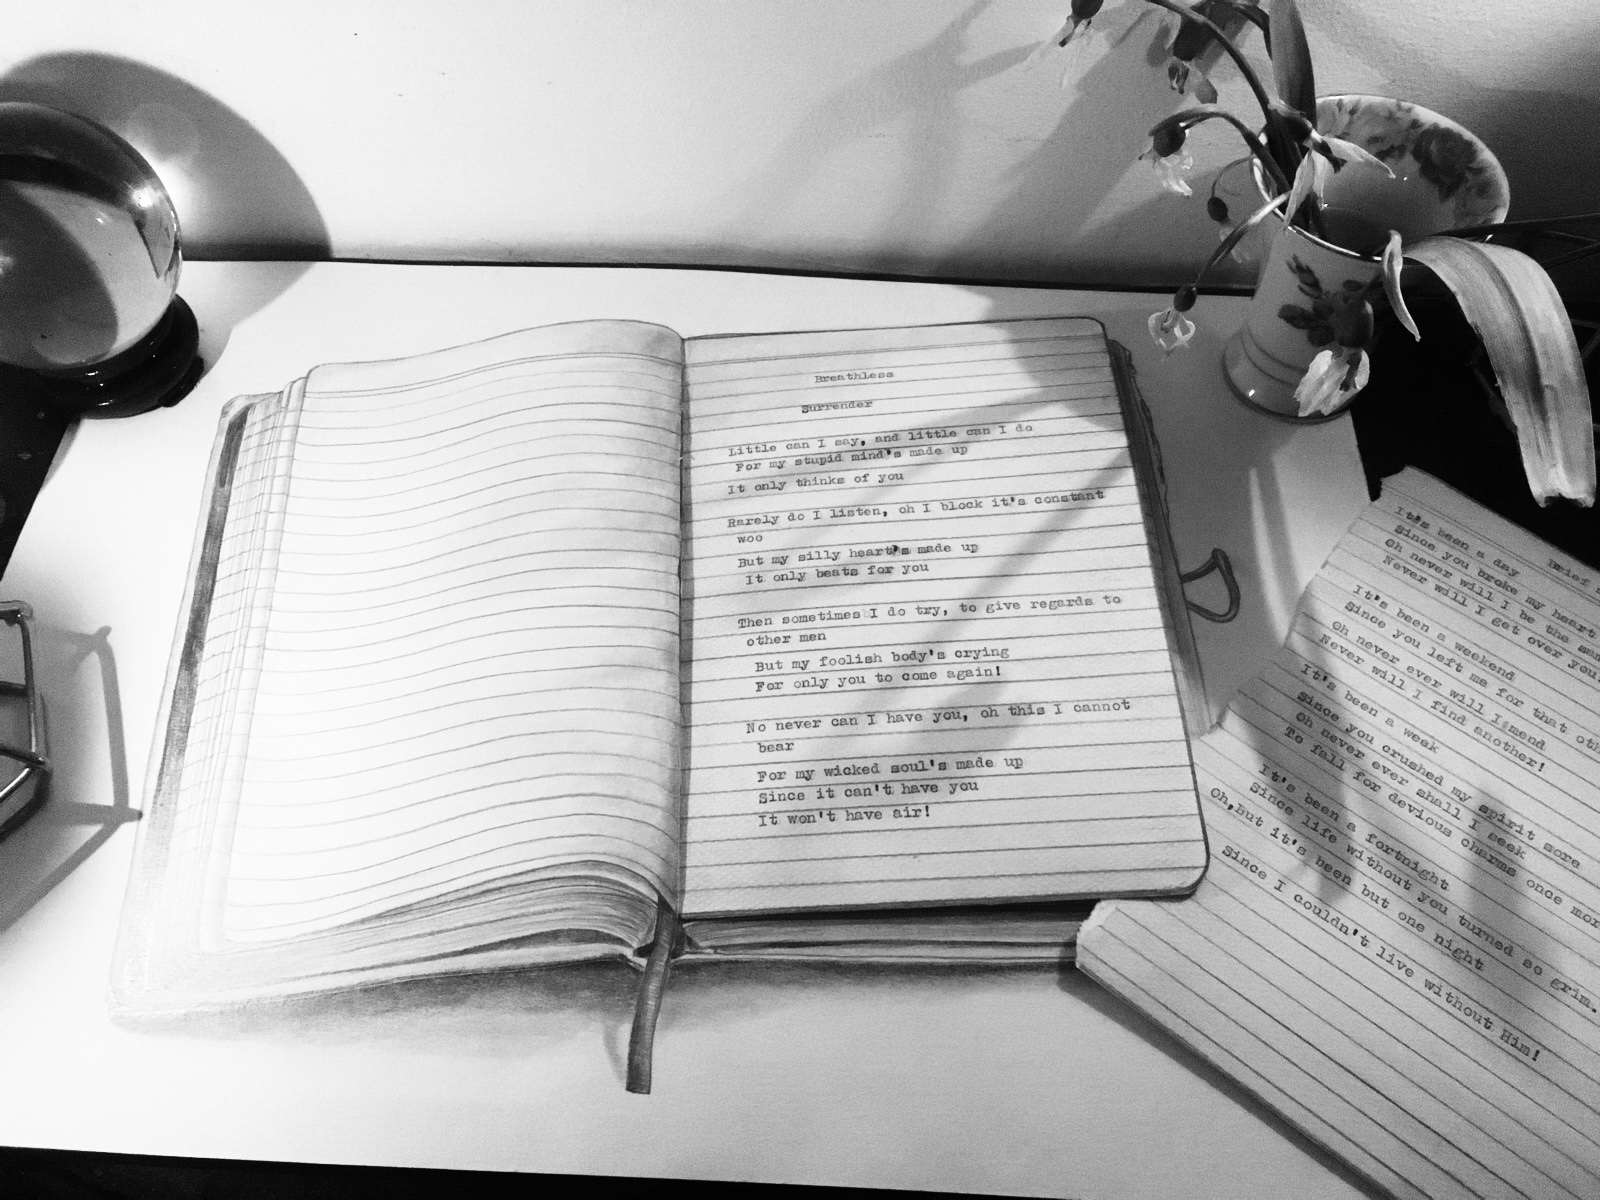 Breathless
Surrender
Little can I say, and little can I do
For my stupid mind's made up
It only thinks of you
Rarely do I listen, oh I block it's constant
woo
But my silly heart's made up
It only beats for you
Then sometimes I do try, to give regards to
other men
But my foolish body's crying
For only you to come again!
No never can I have you, oh this I cannot
bear
For my wicked soul's made up
Since it can't have you
It won't have air!
Brief
It's been a day
Since you broke my heart
Oh never will I be the
Never will I get over you
It's been a weekend
Since you left me for that
Oh never ever will I mend
Never will I find another!
It's been a week
Since you crushed my spirit sore
Oh never ever shall I seek
To fall for devious charms once
It's been a fortnight
Since life without you turned so grim.
Oh, But it's been but one night
Since I couldn't live without Him!